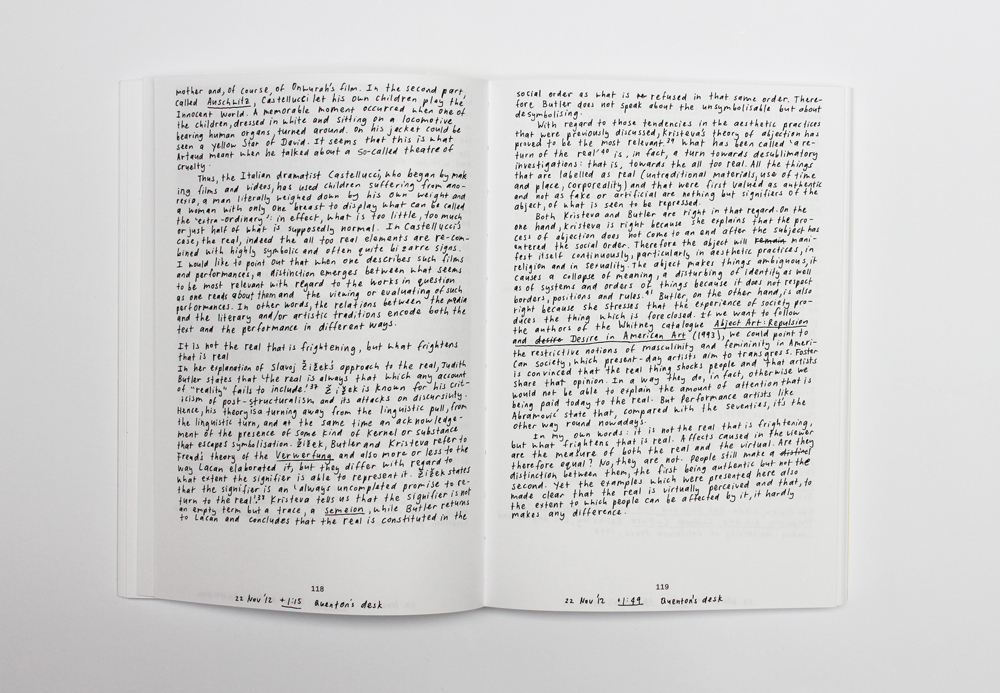 mother and, of course, of Onwurah's film. In the second part,
called Auschwitz, Castellucci let his own children play the
Innocent World. A memorable moment occurred when one of
the children, dressed in white and sitting on a locomotive
bearing human organs, turned around. On his jacket could be
seen a yellow Star of David. It seems that this is what
Artaud meant when he talked about a so-called theatre of
cruelty.
Thus, the Italian dramatist Castellucci, who began by mak-
ing films and videos, has used children suffering from ano-
rexia, a man literally weighed down by his own weight and
a woman with only one breast to display what can be called
the 'extra-ordinary': in effect, what is too little, too much
or just half of what is supposedly normal. In Castellucci's
case, the real, indeed the all too real elements are re-com-
bined with highly symbolic and often quite bizarre signs.
I would like to point out that when one describes such films
and performances, a distinction emerges between what seems
to be most relevant with regard to the works in question
as one reads about them and the viewing or evaluating of such
performances. In other words, the relations between the media
and the literary and/or artistic traditions encode both the
text and the performance in different ways.
It is not the real that is frightening, but what frightens
that is real
In her explanation of Slavoj Žižek's approach to the real, Judith
Butler states that 'the real is always that which any account
of "reality" fails to include.'37 Žižek is known for his crit-
icism of post-structuralism and its attacks on discursivity.
Hence, his theory is a turning away from the linguistic pull, from
the linguistic turn, and at the same time an acknowledge-
ment of the presence of some kind of kernel or substance
that escapes symbolisation. Butler and Kristeva refer to
Freud's theory of the Verwerfung and also more or less to the
way Lacan elaborated it, but they differ with regard to
what extent the signifier is able to represent it. Žižek states
that the signifier is an 'always uncompleted promise to re-
turn to the real'.38 Kristeva tells us that the signifier is not
an empty term but a trace, a semeion, while Butler returns
to Lacan and concludes that the real is constituted in the
118
22 Nov '12 +1:15 Quenton's desk
social order as what is refused in that same order. There-
fore Butler does not speak about the unsymbolisable but about
desymbolising.
With regard to those tendencies in the aesthetic practices
that were previously discussed, Kristeva's theory of abjection has
proved to be the most relevant.39 What has been called 'a re-
turn of the real'40 is, in fact, a turn towards desublimatory
investigations: that is, towards the all too real. All the things
that are labelled as real (untraditional materials, use of time
and place, corporeality) and that were first valued as authentic
and not as fake or artificial are nothing but signifiers of the
abject, of what is seen to be repressed.
Both Kristeva and Butler are right in that regard. On the
one hand, Kristeva is right because she explains that the pro-
cess of abjection does not come to an end after the subject has
entered the social order. Therefore the abject will remain mani-
fest itself continuously, particularly in aesthetic practices, in
religion and in sexuality. The abject makes things ambiguous, it
causes a collapse of meaning, a disturbing of identity as well
as of systems and orders of things because it does not respect
borders, positions and rules.41 Butler, on the other hand, is also
right because she stresses that the experience of society pro-
duces the thing which is foreclosed. If we want to follow
the authors of the Whitney catalogue Abject Art: Repulsion
and Desire in American Art (1993), we could point to
the restrictive notions of masculinity and femininity in Ameri-
can society, which present-day artists aim to transgress. Foster
is convinced that the real thing shocks people and that artists
share that opinion. In a way they do, in fact, otherwise we
would not be able to explain the amount of attention that is
being paid today to the real. But Performance artists like
Abramović state that, compared with the seventies, it's the
other way round nowadays.
In my own words: it is not the real that is frightening,
but what frightens that is real. Affects caused in the viewer
are the measure of both the real and the virtual. Are they
therefore equal? No, they are not. People still make a distinct
distinction between them, the first being authentic but not the
second. Yet the examples which were presented here also
made clear that the real is virtually perceived and that, to
the extent to which people can be affected by it, it hardly
makes any difference.
119
22 Nov '12 +1:49 Quenton's desk